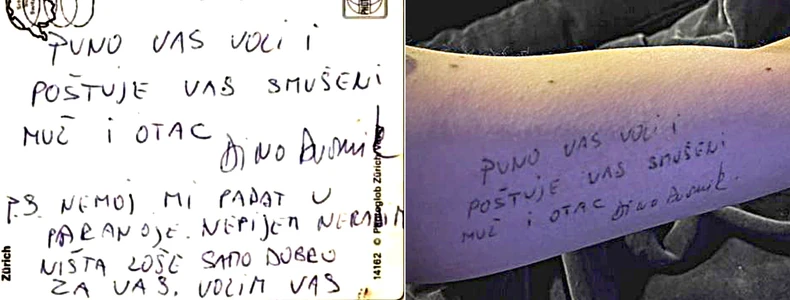 PUNO VAS VOLI I
POŠTUJE VAS SMUŠENI
MUŽ I OTAC
Dino Dvornik
P.S. NEMOJ MI PADAT U
PARANOJE. NEPIJEM NERADIM
NIŠTA LOŠE SAMO DOBRO
ZA VAS. VOLIM VAS
Zürich
14162 © Photoglob Zürich
PUNO VAS VOLI I
POŠTUJE VAS SMUŠENI
MUŽ I OTAC Dino Dvornik.